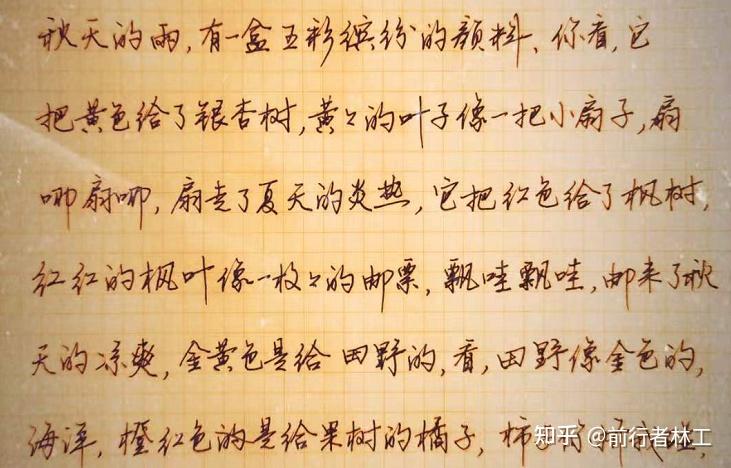 秋天的雨,有一盒五彩缤纷的颜料、你看,它
把黄色给了银杏树,黄々的叶子像一把小扇子,扇
哪扇哪,扇走了夏天的炎热,它把红色给了枫树,
红红的枫叶像一枚々的邮票,飘哇飘哇,邮来了秋
天的凉爽,金黄色是给田野的,看,田野像金色的,
海洋,橙红色的是给果树的橘子,柿子
知乎 @前行者林工